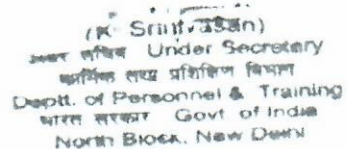 (K. Srinivasan)
अवर सचिव Under Secretary
कार्मिक तथा प्रशिक्षण विभाग
Deptt. of Personnel & Training
भारत सरकार Govt of India
North Block, New Delhi